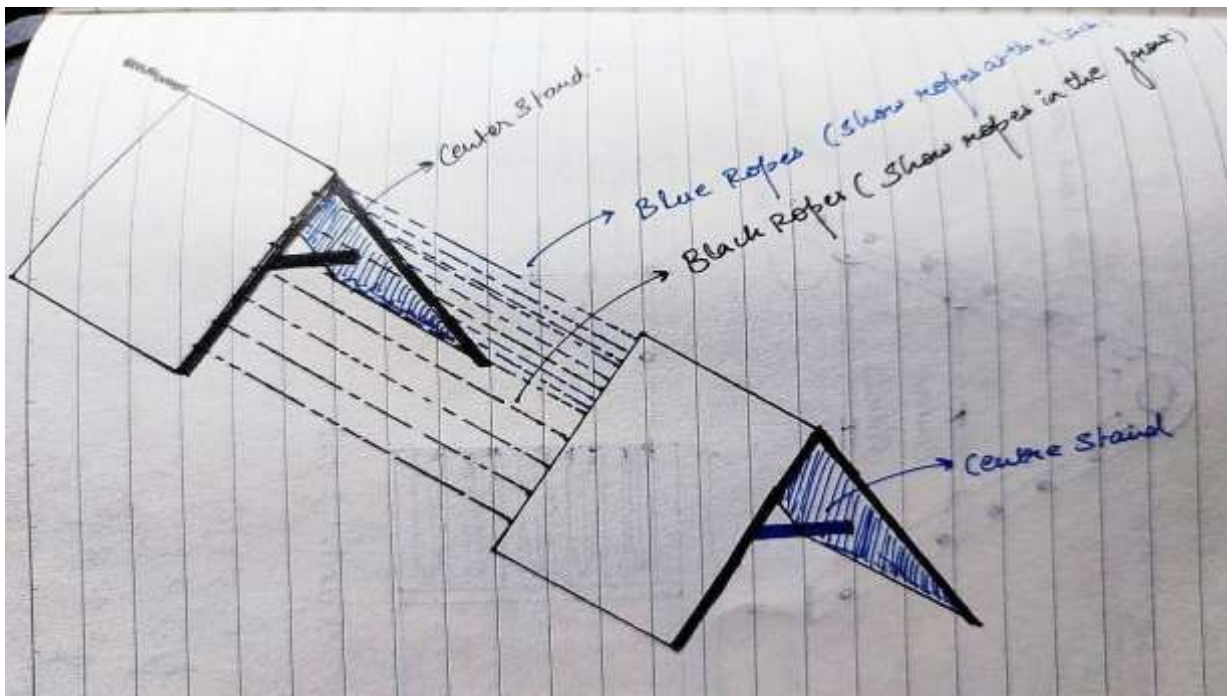 Center Stand.
Blue Ropes (Show ropes at the back
Black Ropes (Show ropes in the front)
Centre Stand